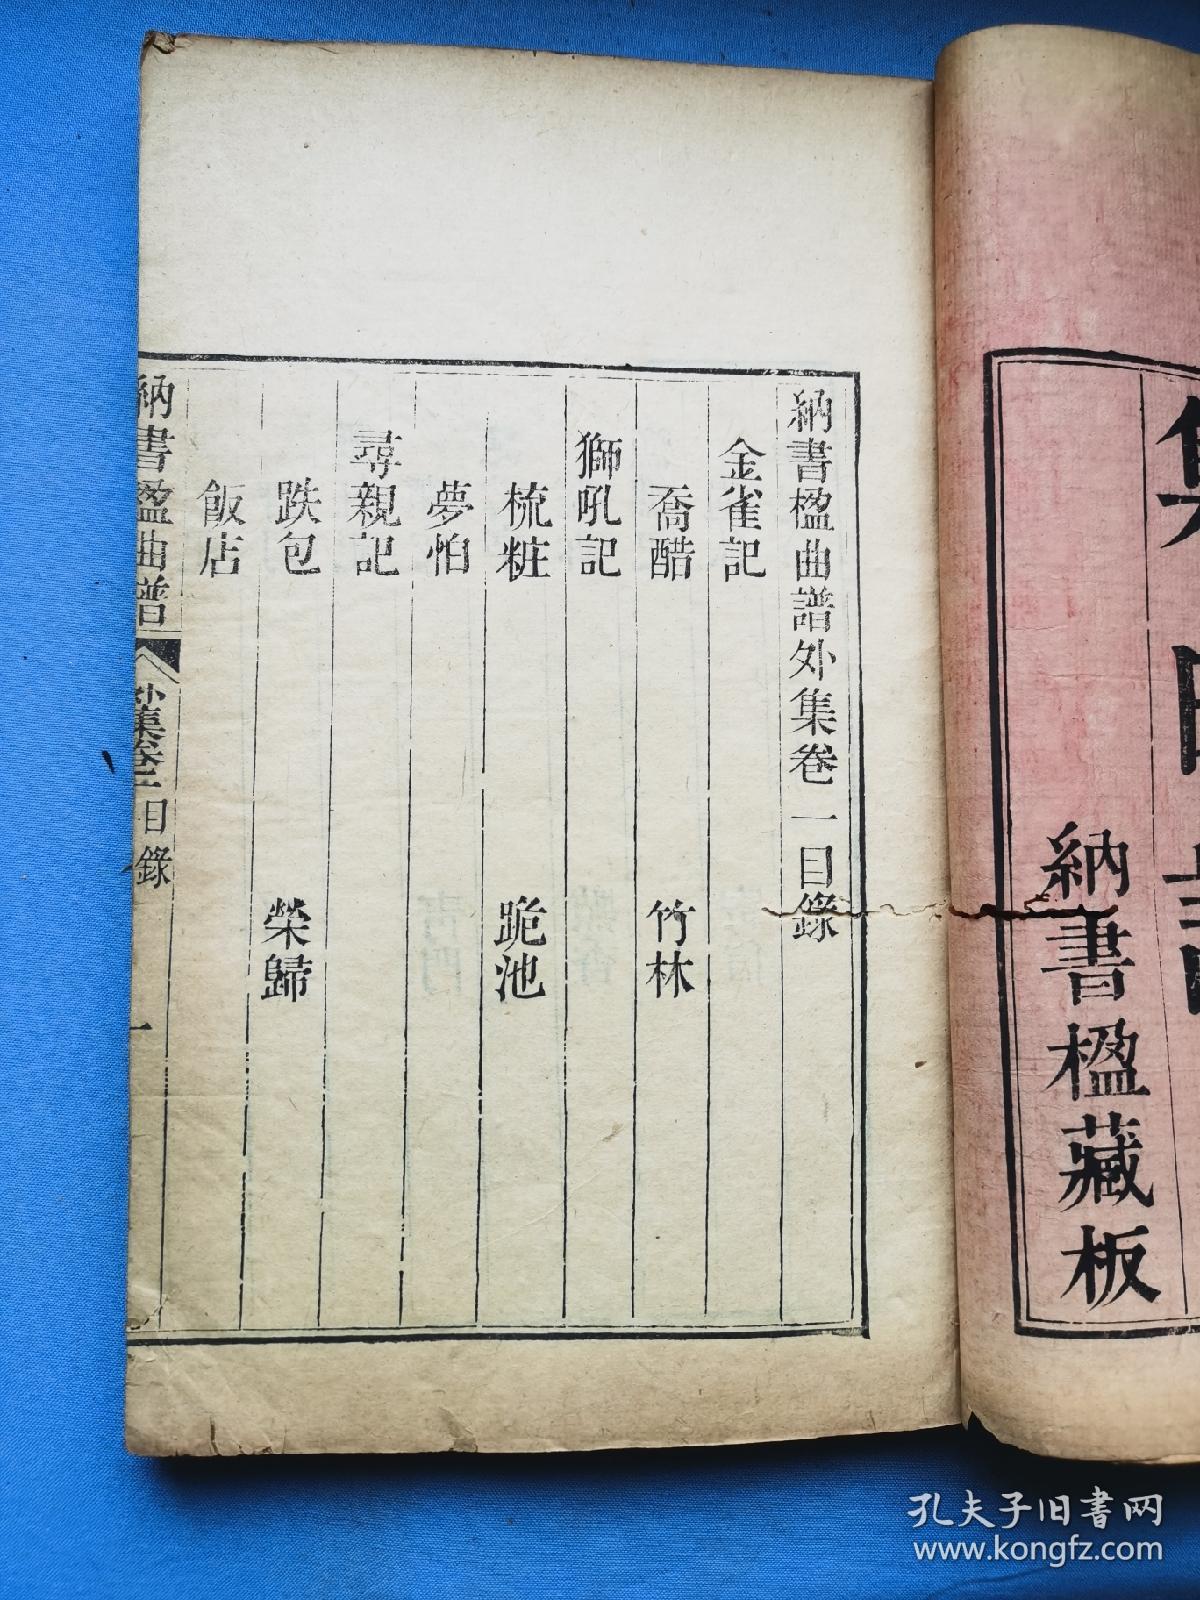 納書楹藏板
納書楹曲譜外集卷一目錄
金雀記
喬醋　竹林
獅吼記
梳粧　跪池
夢怕
尋親記
跌包　榮歸
飯店
納書楹曲譜　外集卷　目錄　一
孔夫子旧书网
www.kongfz.com